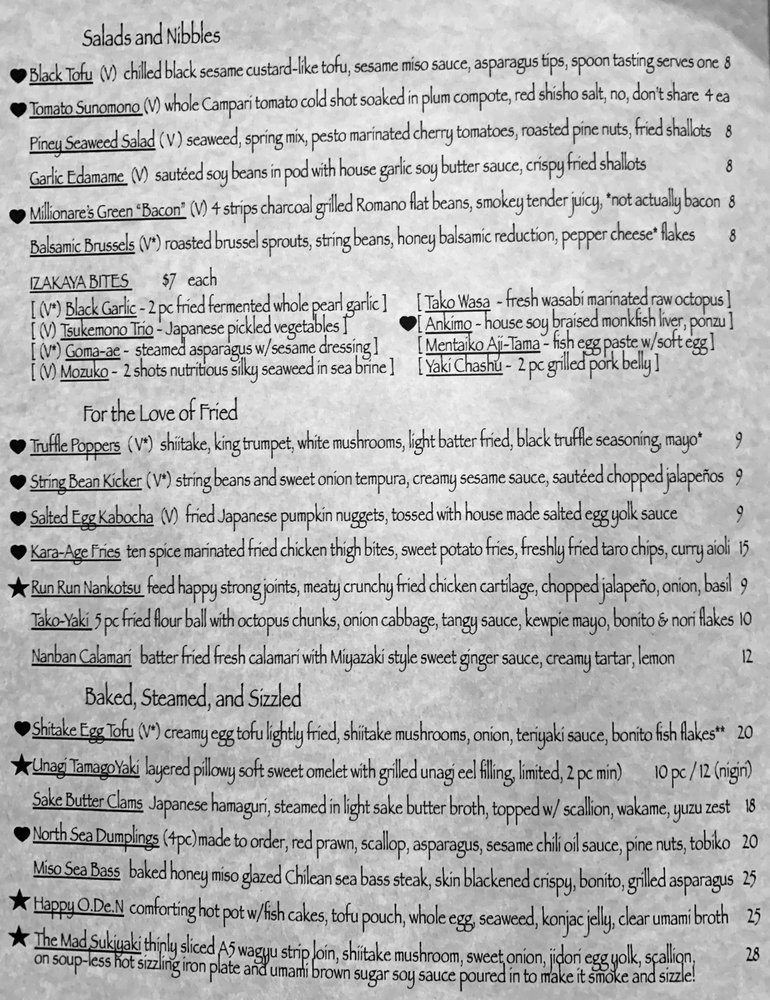 Salads and Nibbles
Black Tofu (V) chilled black sesame custard-like tofu, sesame miso sauce, asparagus tips, spoon tasting serves one 8
Tomato Sunomono (V) whole Campari tomato cold shot soaked in plum compote, red shisho salt, no, don't share 4 ea
Piney Seaweed Salad (V) seaweed, spring mix, pesto marinated cherry tomatoes, roasted pine nuts, fried shallots 8
Garlic Edamame (V) sautéed soy beans in pod with house garlic soy butter sauce, crispy fried shallots 8
Millionare's Green "Bacon" (V) 4 strips charcoal grilled Romano flat beans, smokey tender juicy, *not actually bacon 8
Balsamic Brussels (V*) roasted brussel sprouts, string beans, honey balsamic reduction, pepper cheese* flakes 8
IZAKAYA BITES $7 each
[ (V*) Black Garlic - 2 pc fried fermented whole pearl garlic ] [ Tako Wasa - fresh wasabi marinated raw octopus ]
[ (V) Tsukemono Trio - Japanese pickled vegetables ] [ Ankimo - house soy braised monkfish liver, ponzu ]
[ (V*) Goma-ae - steamed asparagus w/sesame dressing ] [ Mentaiko Aji-Tama - fish egg paste w/soft egg ]
[ (V) Mozuko - 2 shots nutritious silky seaweed in sea brine ] [ Yaki Chashu - 2 pc grilled pork belly ]
For the Love of Fried
Truffle Poppers (V*) shiitake, king trumpet, white mushrooms, light batter fried, black truffle seasoning, mayo* 9
String Bean Kicker (V*) string beans and sweet onion tempura, creamy sesame sauce, sautéed chopped jalapeños 9
Salted Egg Kabocha (V) fried Japanese pumpkin nuggets, tossed with house made salted egg yolk sauce 9
Kara-Age Fries ten spice marinated fried chicken thigh bites, sweet potato fries, freshly fried taro chips, curry aioli 15
Run Run Nankotsu feed happy strong joints, meaty crunchy fried chicken cartilage, chopped jalapeño, onion, basil 9
Tako-Yaki 5 pc fried flour ball with octopus chunks, onion cabbage, tangy sauce, kewpie mayo, bonito & nori flakes 10
Nanban Calamari batter fried fresh calamari with Miyazaki style sweet ginger sauce, creamy tartar, lemon 12
Baked, Steamed, and Sizzled
Shitake Egg Tofu (V*) creamy egg tofu lightly fried, shiitake mushrooms, onion, teriyaki sauce, bonito fish flakes** 20
Unagi TamagoYaki layered pillowy soft sweet omelet with grilled unagi eel filling, limited, 2 pc min) 10 pc / 12 (nigiri)
Sake Butter Clams Japanese hamaguri, steamed in light sake butter broth, topped w/ scallion, wakame, yuzu zest 18
North Sea Dumplings (4pc) made to order, red prawn, scallop, asparagus, sesame chili oil sauce, pine nuts, tobiko 20
Miso Sea Bass baked honey miso glazed Chilean sea bass steak, skin blackened crispy, bonito, grilled asparagus 25
Happy O.De.N comforting hot pot w/fish cakes, tofu pouch, whole egg, seaweed, konjac jelly, clear umami broth 25
The Mad Sukiyaki thinly sliced A5 wagyu strip loin, shiitake mushroom, sweet onion, jidori egg yolk, scallion, 28
on soup-less hot sizzling iron plate and umami brown sugar soy sauce poured in to make it smoke and sizzle!